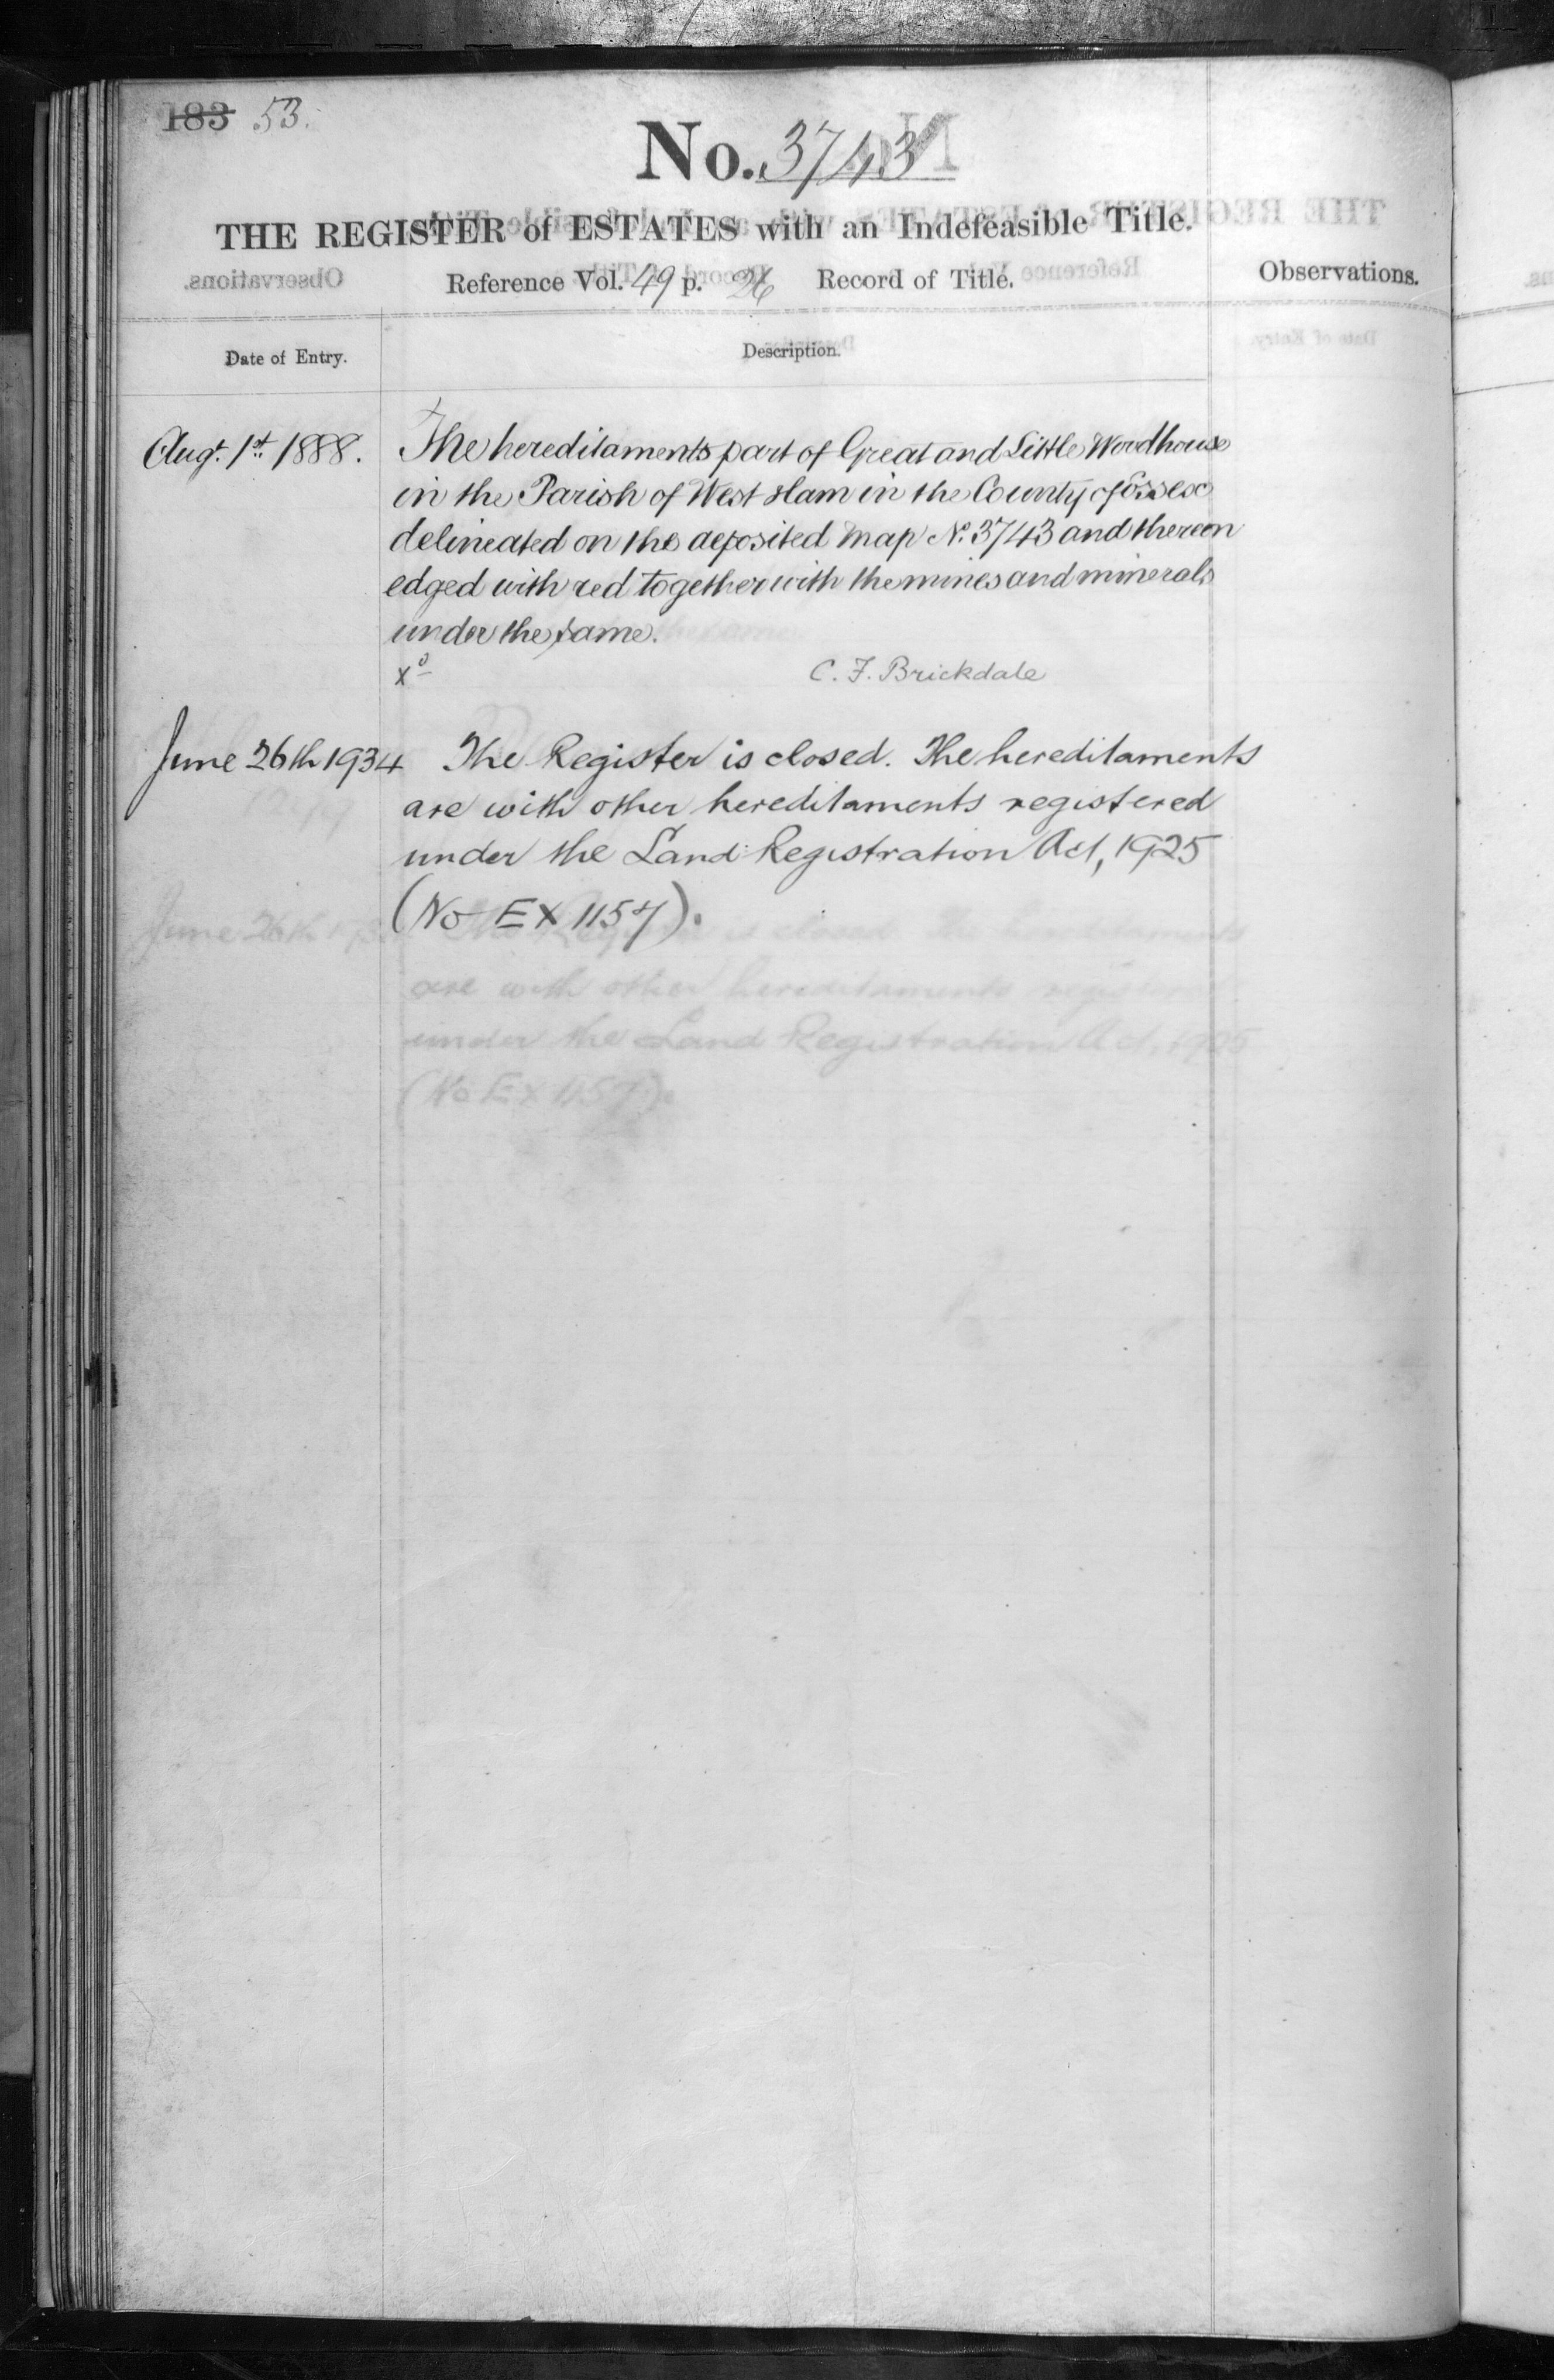 183 53.
No. 3743
THE REGISTER of ESTATES with an Indefeasible Title.
Reference Vol. 49 p. 26 Record of Title.
Observations.
Date of Entry.
Description.
Augt. 1st. 1888.
The hereditaments part of Great and Little Woodhouse
in the Parish of West Ham in the County of Essex
delineated on the deposited map No. 3743 and thereon
edged with red together with the mines and minerals
under the same.
C. F. Brickdale
June 26th 1934
The Register is closed. The hereditaments
are with other hereditaments registered
under the Land Registration Act, 1925
(No EX 1157).